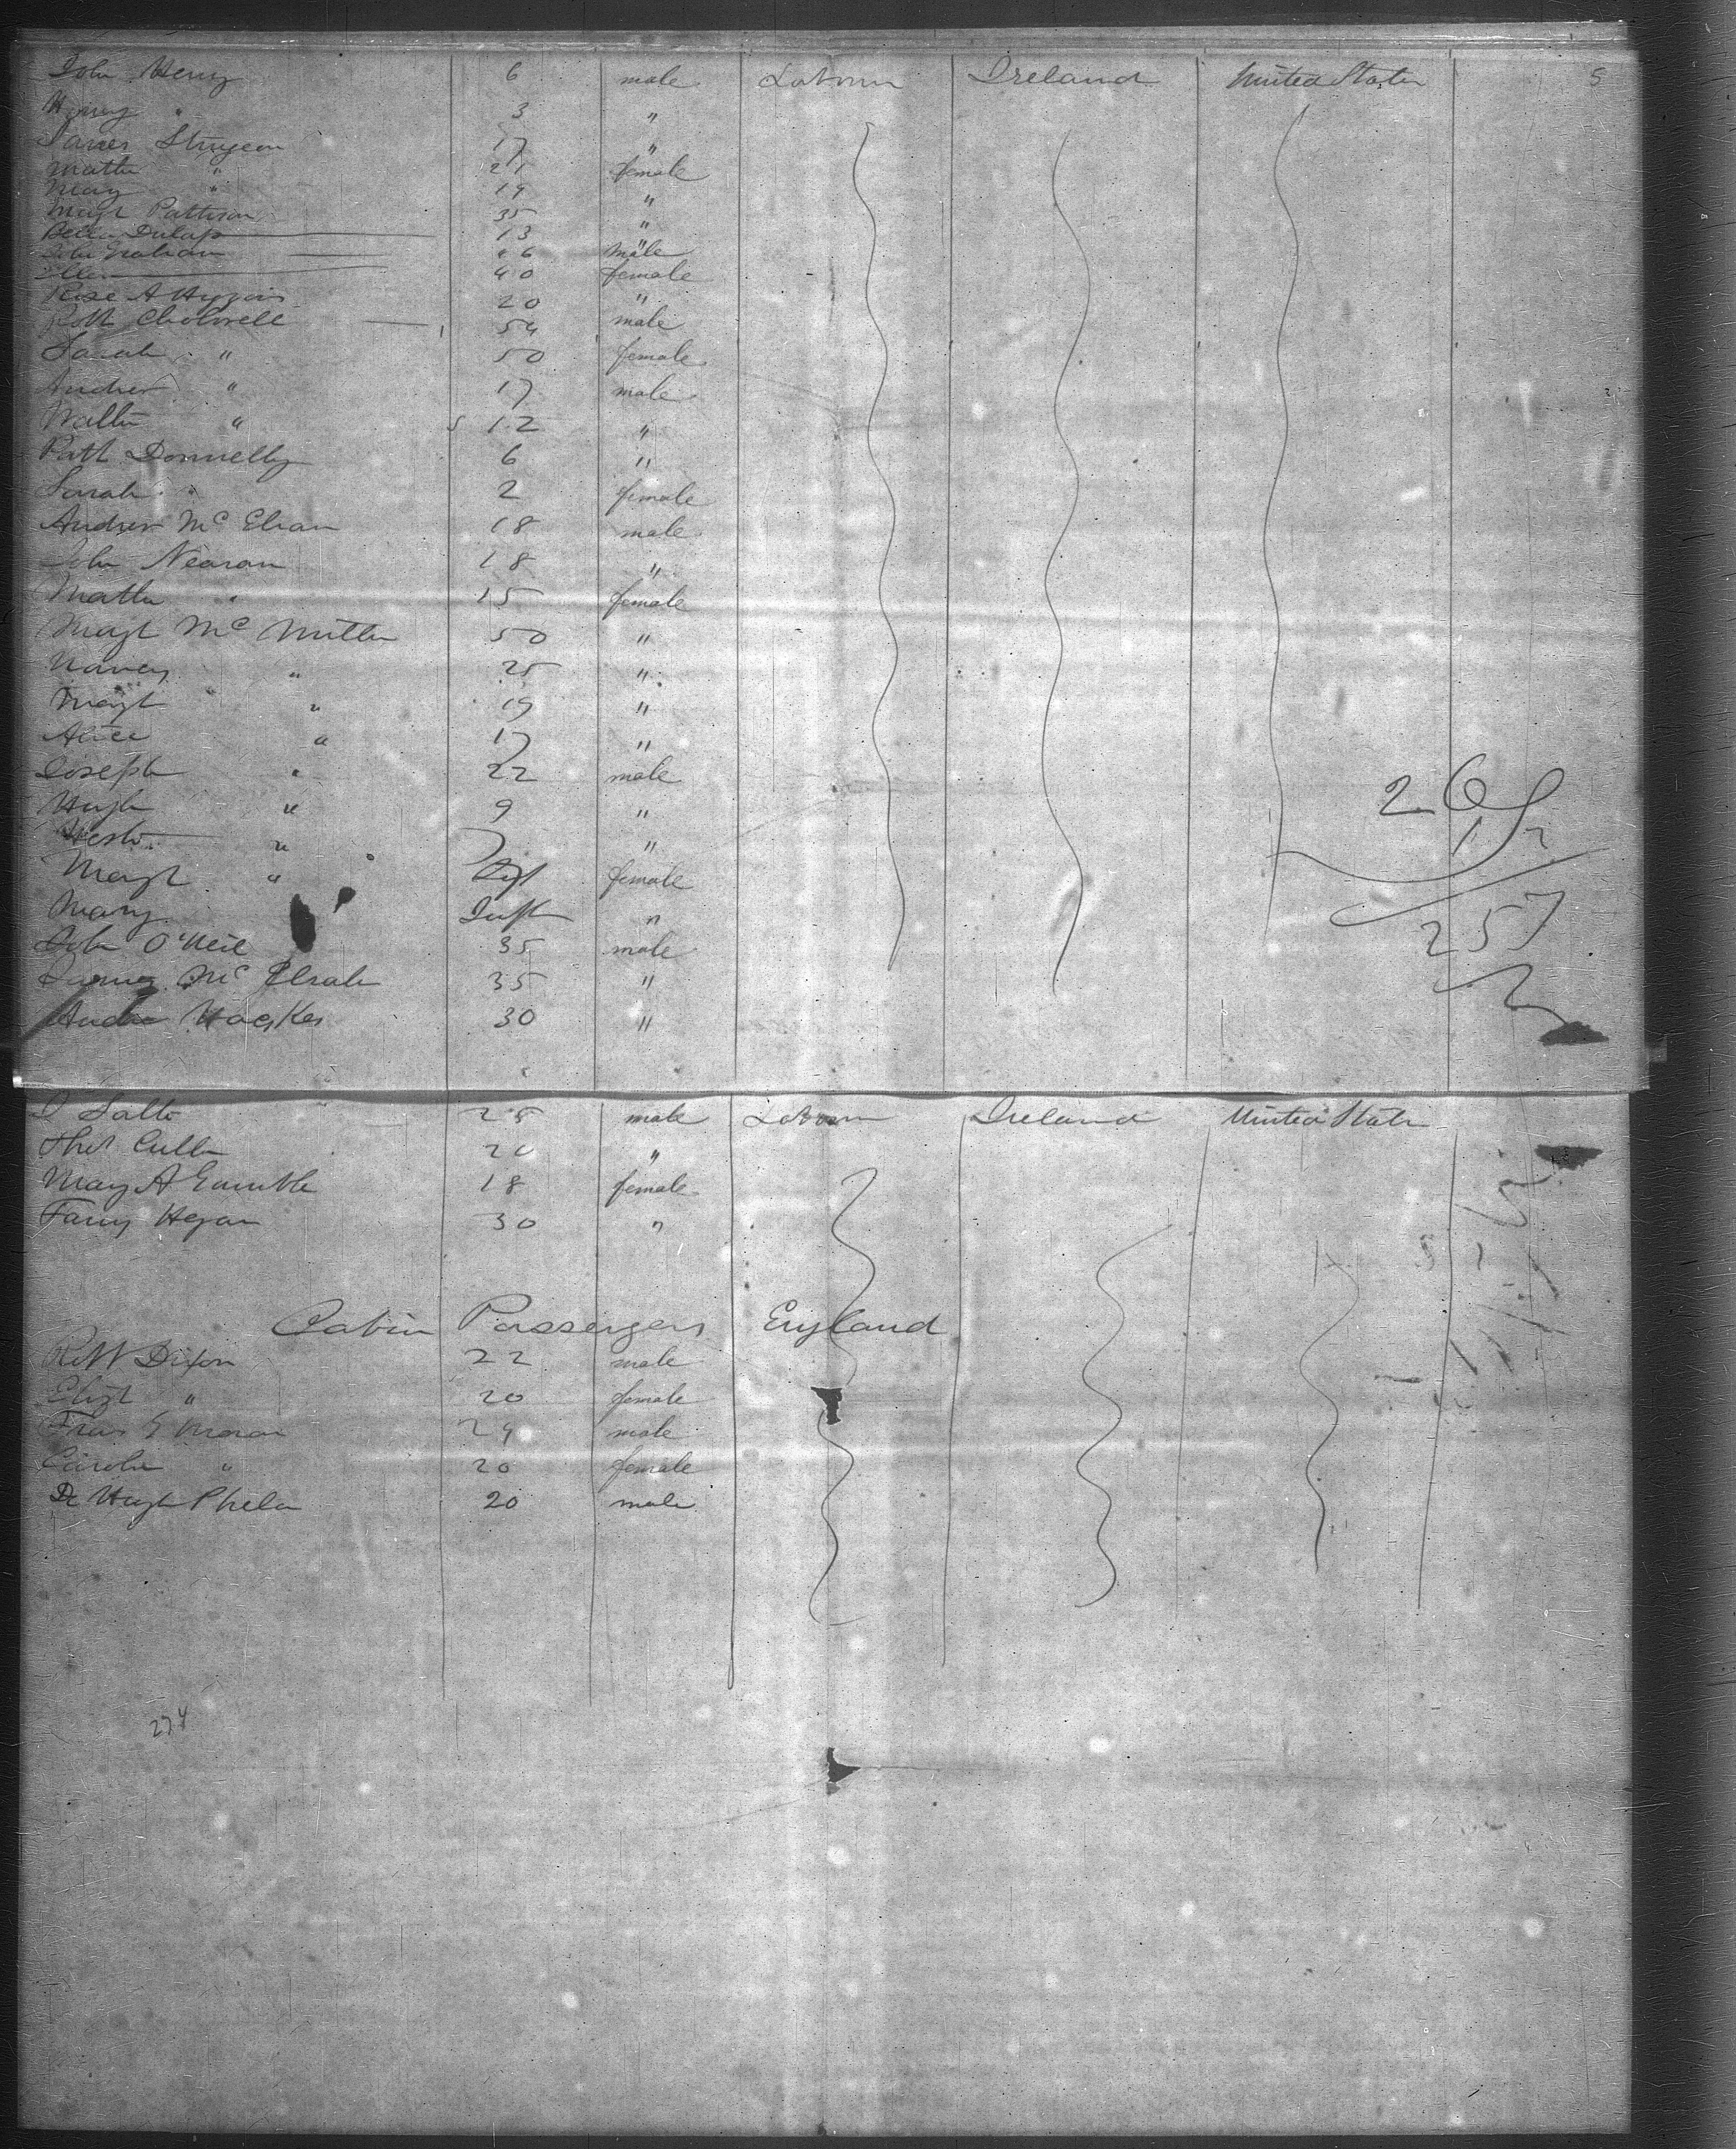 John Henry 6 male Labourer Ireland United States 5
Henry " 3 "
James Sturgeon 17 "
Matta " 21 female
Mary " 19 "
Margt Pattison 35 "
Bella Dulap 13 "
John Graham 26 male
Ellen 40 female
Rose A Hyzois 20 "
Robt Cholwell 54 male
Sarah " 50 female
Andrew " 17 male
Walter " 12 "
Patt Donnelly 6 "
Sarah " 2 female
Andrew Mc Elran 18 male
John Nearan 18 "
Matta " 15 female
Margt Mc Mitter 50 "
Nancy " 25 "
Margt " 19 "
Alice " 17 "
Joseph " 22 male
Hugh " 9 "
" 7 "
Margt " female
Mary Inft "
John O'Neil 35 male
Mc Elrah 35 "
Andw 30 "
257
25 male Labourer Ireland United States
Thos Cullen 20 "
Mary A Gamble 18 female
Fanny Hegan 30 "
Cabin Passengers England
Robt Dixon 22 male
Elizt " 20 female
Fras E Moran 24 male
Caroline " 20 female
Dr Hugh Phelan 20 male
274